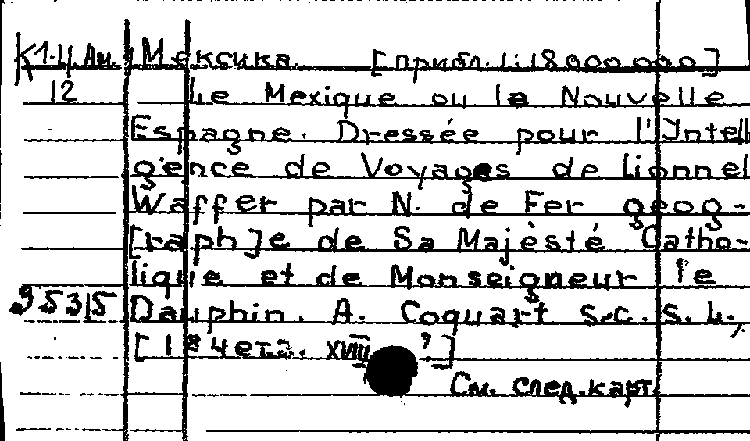 К1-Ц.Ам. Мексика. [прибл. 1:18000.000]
12 Le Mexique ou la Nouvelle
Espagne. Dressée pour l'Intell
gence de Voyages de Lionnel
Waffer par N. de Fer geog-
[raph]e de Sa Majèsté Catho-
lique et de Monseigneur le
95315 Dauphin. A. Coquart s.c. S. L.,
[1я четв. XVIII ?]
См. след. карт.